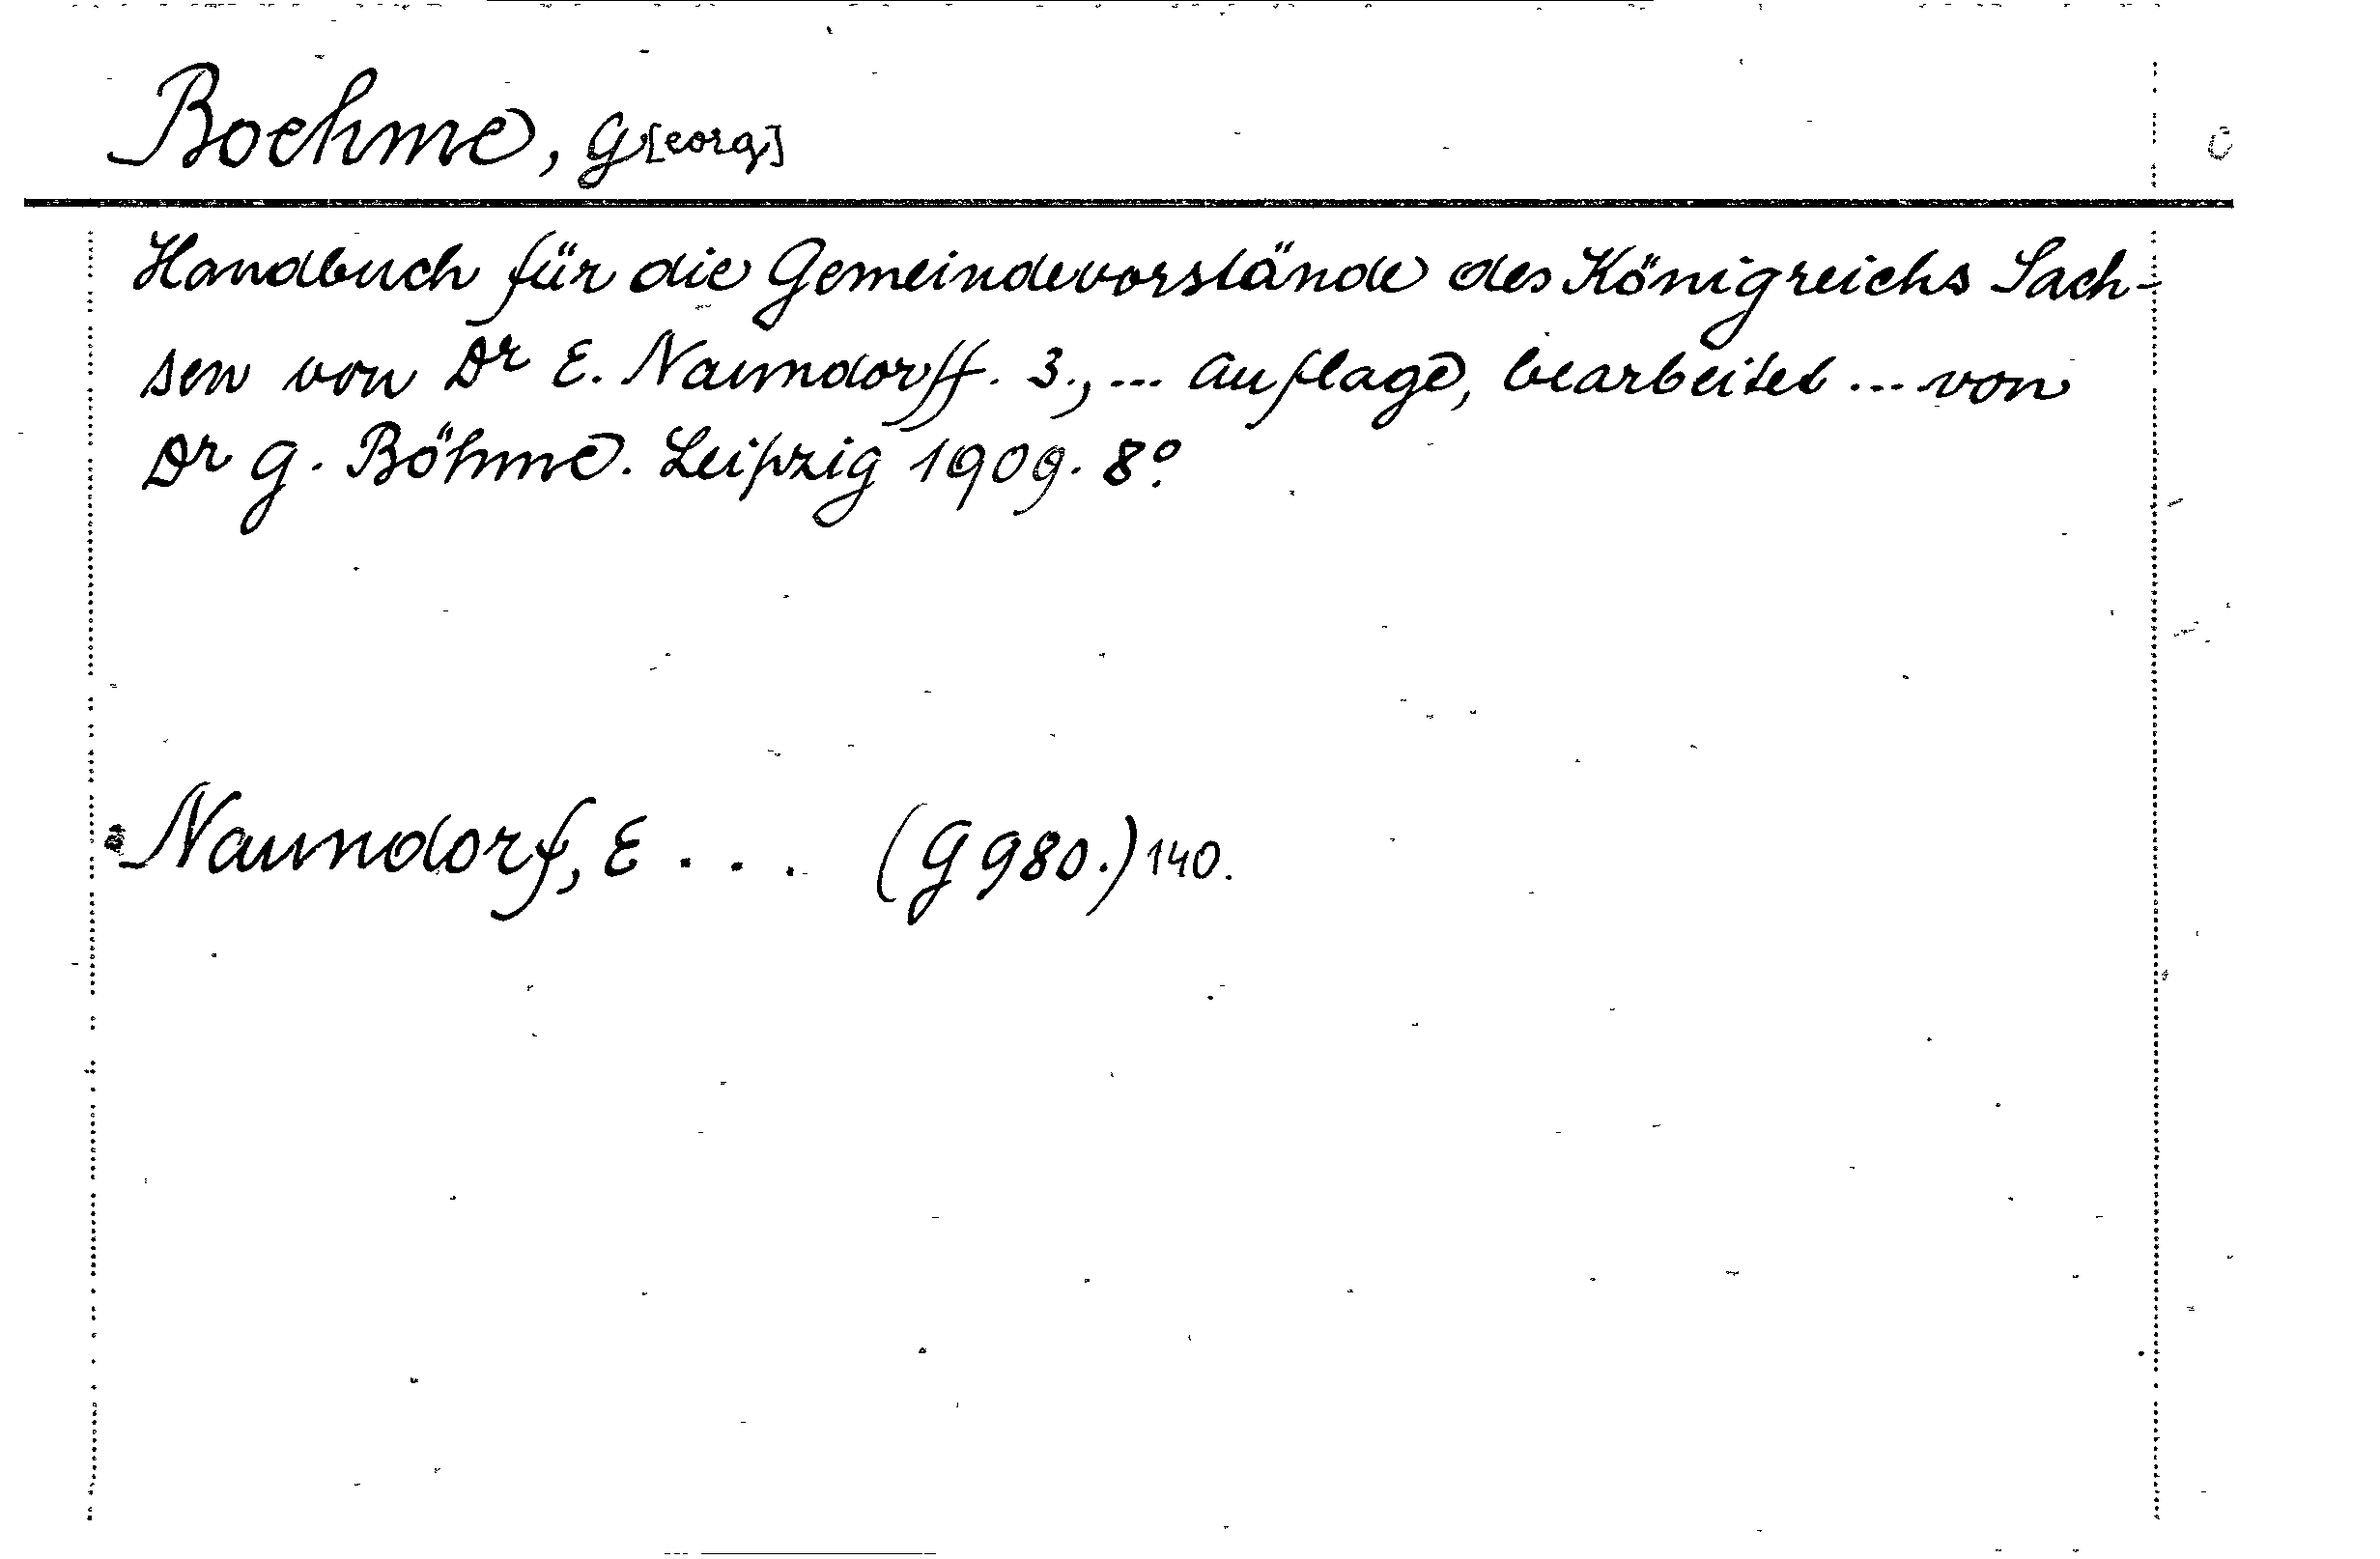 Boehme, G[eorg]
Handbuch für die Gemeindevorstände des Königreichs Sach-
sen von Dr E. Naundorff. 3., ... Auflage, bearbeitet ... von
Dr G. Böhme. Leipzig 1909. 8°.
Naundorf, E . . . (G 980.) 140.